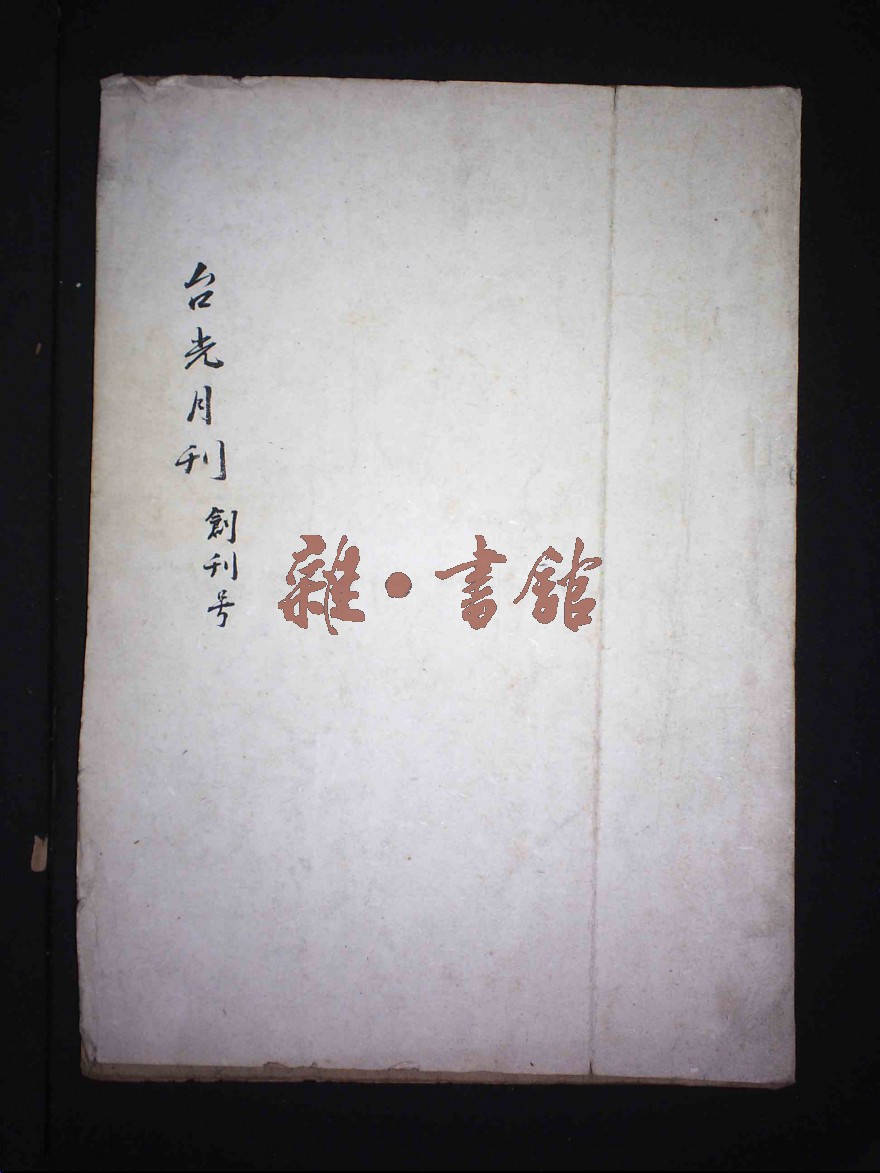 台光月刊
創刊号
雜·書館